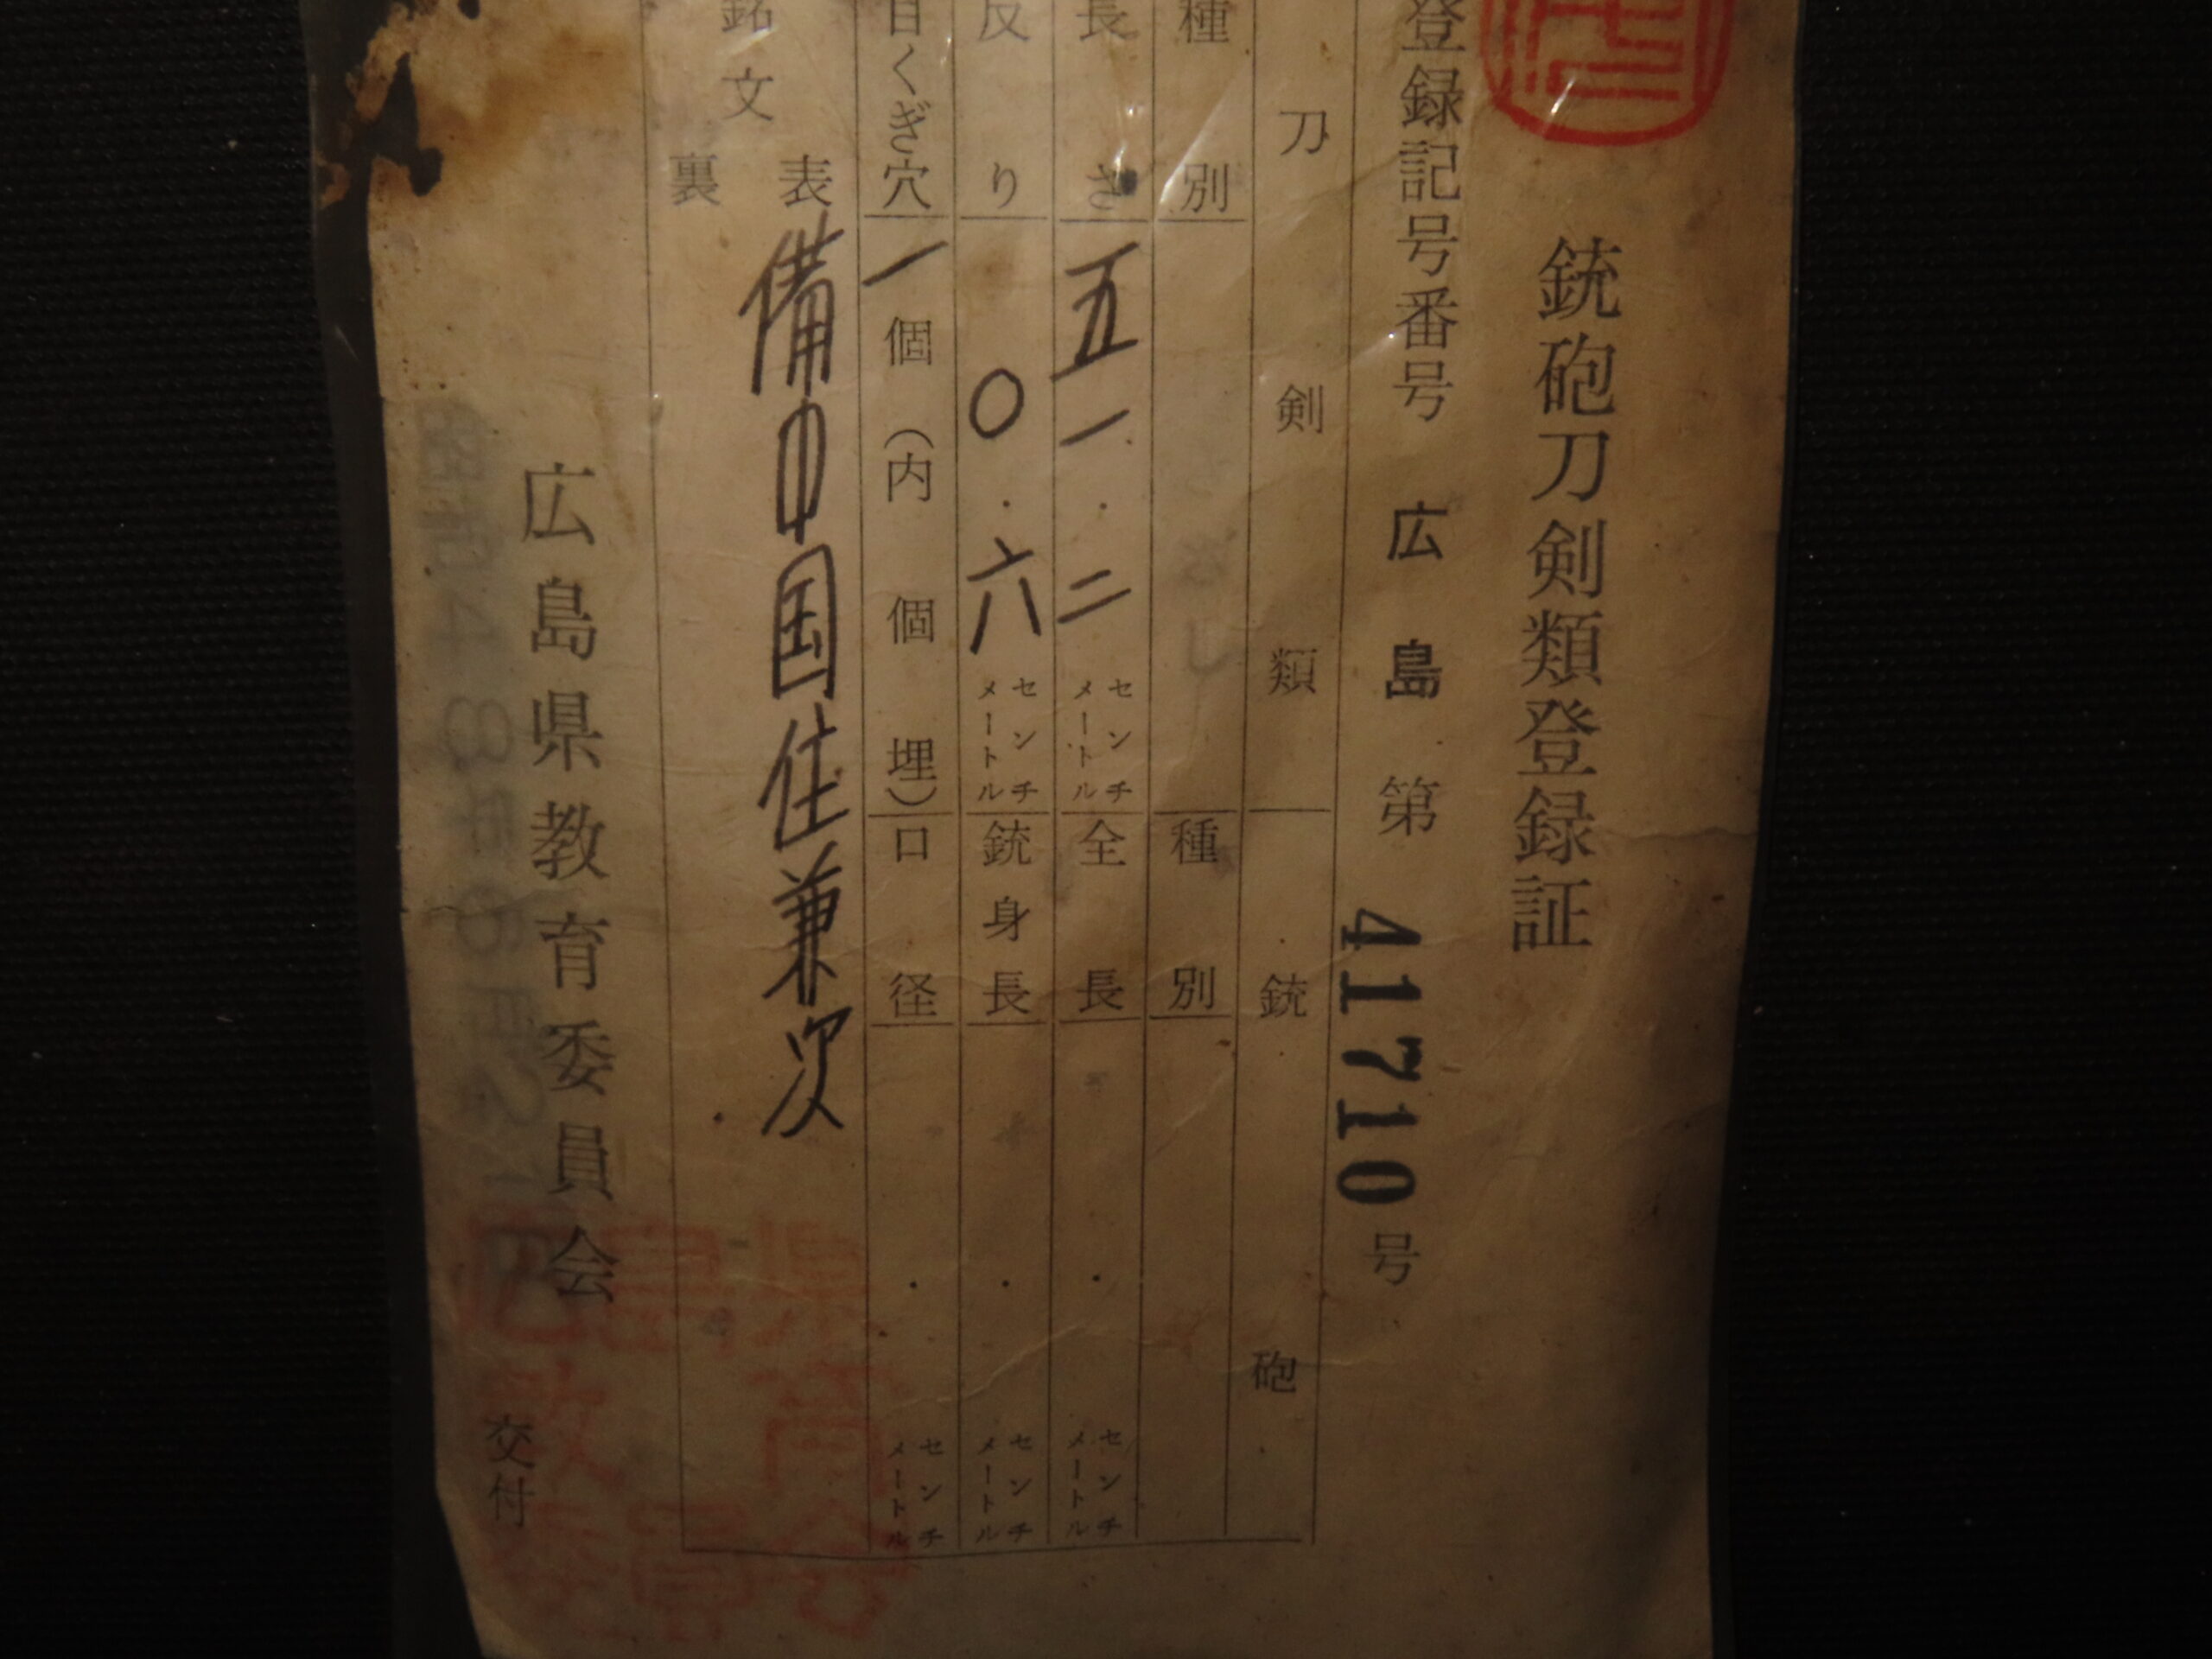 銃砲刀剣類登録証
登録記号番号 広島 第 41710 号
刀剣類 銃砲
種別 種別
長さ 五一.二 センチメートル 全長 . センチメートル
反り 〇.六 センチメートル 銃身長 . センチメートル
目くぎ穴 一個(内 個埋) 口径 . センチメートル
銘文
表 備中国住兼次
裏
広島県教育委員会
交付